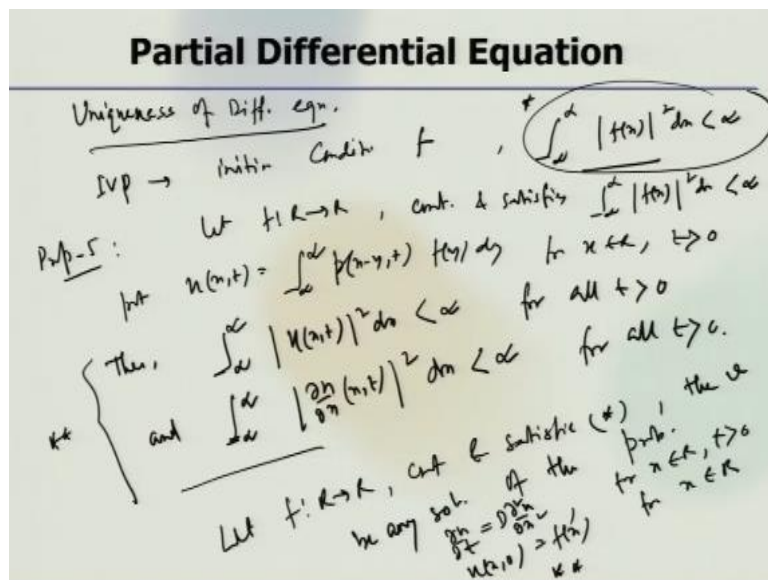 Partial Differential Equation
Uniqueness of Diff. eqn.
IVP → Condition f , * ∫_{-∞}^{∞} |f(x)|² dx < ∞
Prop-5 : Let f: R→R , cont. & satisfies ∫_{-∞}^{∞} |f(x)|² dx < ∞
put u(x,t) = ∫_{-∞}^{∞} p(x-y,t) f(y) dy for x∈R, t>0
Then, ∫_{-∞}^{∞} |u(x,t)|² dx < ∞ for all t>0
** and ∫_{-∞}^{∞} |∂u/∂x (x,t)|² dx < ∞ for all t>0.
Let f: R→R, cont & satisfies (*) , the u
be any sol. of the prob.
∂u/∂t = D ∂²u/∂x² , for x∈R, t>0
u(x,0) = f(x) for x∈R
**